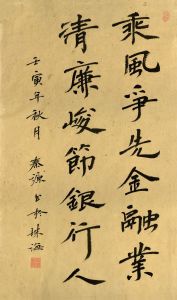 乘風爭先金融業
清廉峻節銀行人
壬寅年秋月 秦源書於珠海